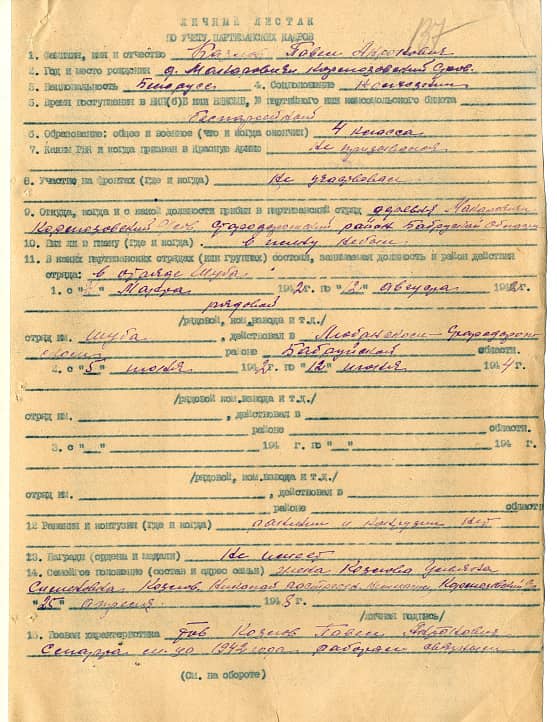 ЛИЧНЫЙ ЛИСТОК
137
ПО УЧЕТУ ПАРТИЗАНСКИХ КАДРОВ
1. Фамилия, имя и отчество Козлов Павел
2. Год и место рождения д. Макаровичи
3. Национальность Белорусс 4. Соцположение
5. Время поступления в ВКП(б)Б или ВЛКСМБ, № партийного или комсомольского билета
беспартийный
6. Образование: общее и военное (что и когда окончил) 4 класса
7. Каким РВК и когда призван в Красную Армию Не призывался
8. Участие на фронтах (где и когда) Не участвовал
9. Откуда, когда и с какой должности прибыл в партизанский отряд деревня
район
10. Был ли в плену (где и когда) в плену не был
11. В каких партизанских отрядах (или группах) состоял, занимаемая должность и район действия
отряда: в отряде Шуба
1. с " " Марта 1942 г. по "12" августа 1942 г.
рядовой
/рядовой, ком.взвода и т.д./
отряд им. Шуба, действовал в
районе области.
2. с "5" июня 1942 г. по "12" июня 1944 г.
/рядовой ком.взвода и т.д./
отряд им. , действовал в
районе области.
3. с " " 194 г. по " " 194 г.
/рядовой, ком.взвода и т.д./
отряд им. , действовал в
районе области
12 Ранения и контузии (где и когда) ранения и контузии нет
13. Награды (ордена и медали) Не имеет
14. Семейное положение (состав и адрес семьи) жена Козлова
Козлов Николай
"25" апреля 1945 г.
/личная подпись/
15. Боевая характеристика Тов Козлов Павел
1942 года работал
(См. на обороте)